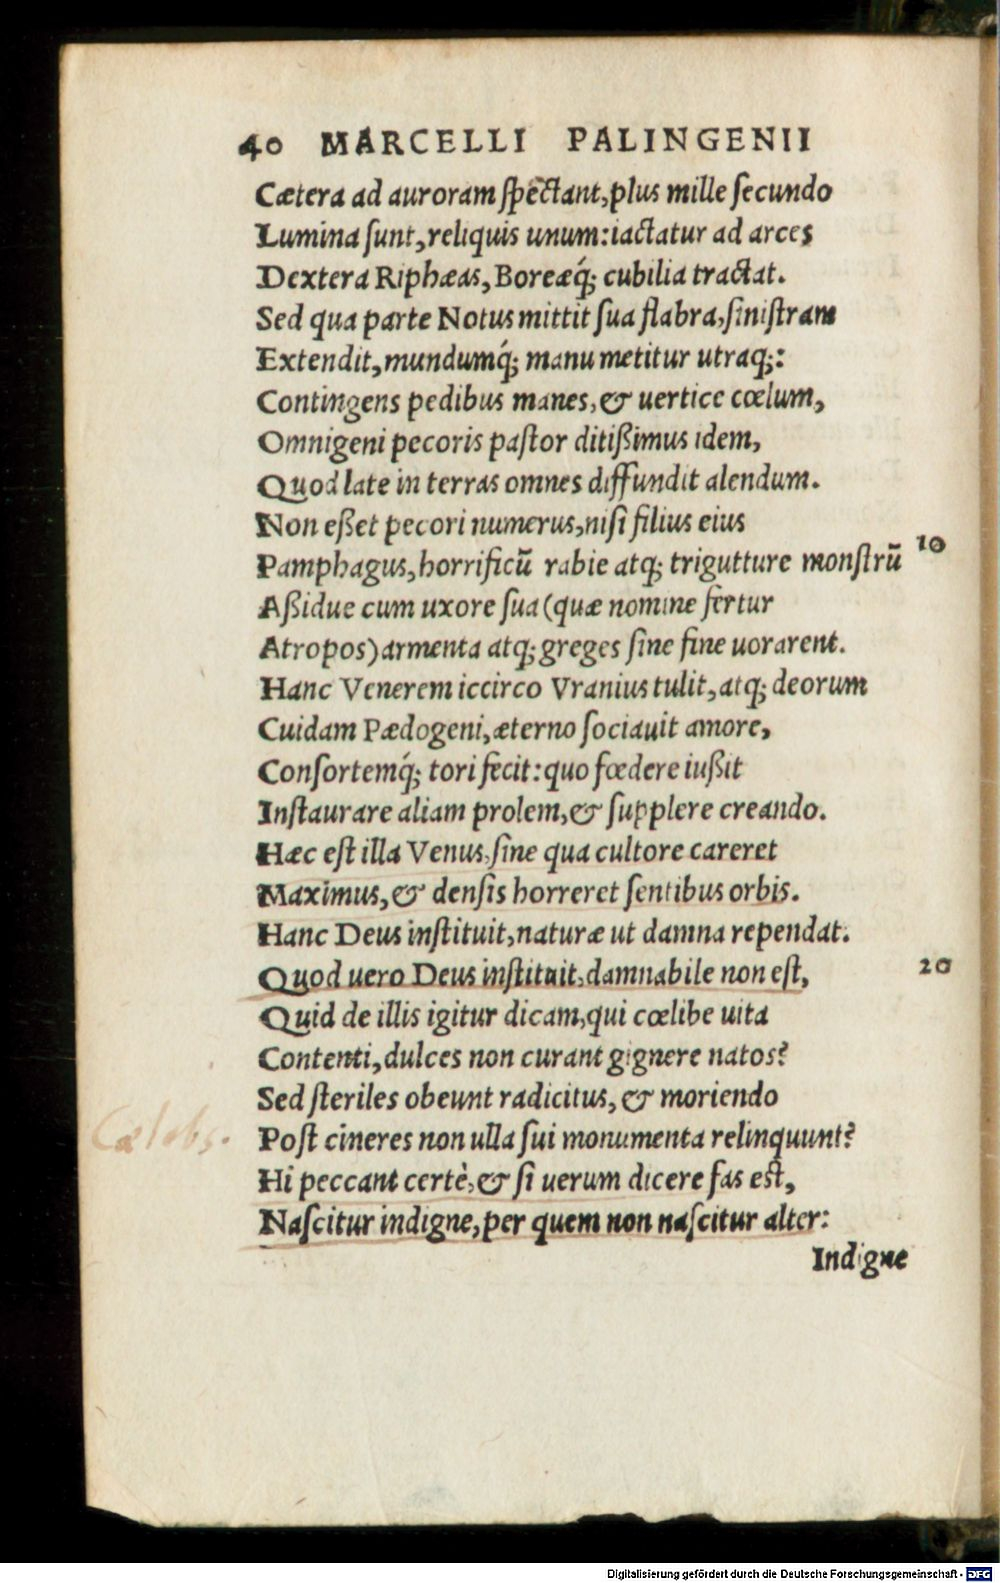 40 MARCELLI PALINGENII
Cætera ad auroram ſpectant, plus mille ſecundo
Lumina ſunt, reliquis unum: iactatur ad arces
Dextera Riphæas, Boreæq́; cubilia tractat.
Sed qua parte Notus mittit ſua flabra, ſiniſtram
Extendit, mundumq́; manu metitur utraq;:
Contingens pedibus manes, & uertice cœlum,
Omnigeni pecoris paſtor ditißimus idem,
Quod late in terras omnes diffundit alendum.
Non eßet pecori numerus, niſi filius eius
Pamphagus, horrificū rabie atq; trigutture monſtrū 10
Aßidue cum uxore ſua (quæ nomine fertur
Atropos) armenta atq; greges ſine fine uorarent.
Hanc Venerem iccirco Vranius tulit, atq; deorum
Cuidam Pædogeni, æterno ſociauit amore,
Conſortemq́; tori fecit: quo fœdere iußit
Inſtaurare aliam prolem, & ſupplere creando.
Hæc eſt illa Venus, ſine qua cultore careret
Maximus, & denſis horreret ſentibus orbis.
Hanc Deus inſtituit, naturæ ut damna rependat.
Quod uero Deus inſtituit, damnabile non eſt, 20
Quid de illis igitur dicam, qui cœlibe uita
Contenti, dulces non curant gignere natos?
Sed ſteriles obeunt radicitus, & moriendo
Cælebs.
Poſt cineres non ulla ſui monumenta relinquunt?
Hi peccant certè, & ſi uerum dicere fas eſt,
Naſcitur indigne, per quem non naſcitur alter:
Indigne
Digitalisierung gefördert durch die Deutsche Forschungsgemeinschaft - DFG